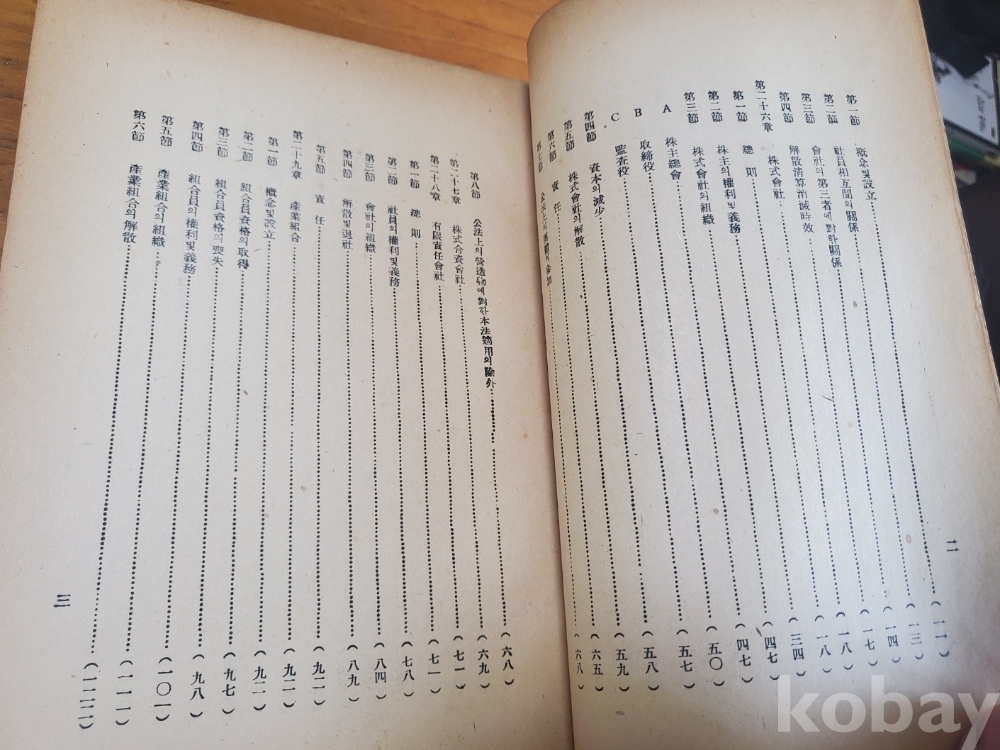 第一節 概念및設立 (一一)
第二節 社員相互間의關係 (一三)
第三節 會社의第三者에對한關係 (一四)
第四節 解散淸算消滅時效 (一七)
第二十六章 株式會社 (一八)
第一節 總則 (一八)
第二節 株主의權利및義務 (三四)
第三節 株式會社의組織 (四七)
A 株主總會 (四七)
B 取締役 (五〇)
C 監査役 (五七)
第四節 資本의減少 (五八)
第五節 株式會社의解散 (五九)
第六節 責任 (六五)
第七節 公法上의 (六八)
二
第八節 公法上의營造物에對한本法適用의除外 (六八)
第二十七章 株式合資會社 (六九)
第二十八章 有限責任會社 (七一)
第一節 總則 (七一)
第二節 社員의權利및義務 (七八)
第三節 會社의組織 (八四)
第四節 解散및退社 (八九)
第五節 責任 (九二)
第二十九章 產業組合 (九二)
第一節 概念및設立 (九二)
第二節 組合員資格의取得 (九七)
第三節 組合員資格의喪失 (九七)
第四節 組合員의權利및義務 (九八)
第五節 產業組合의組織 (一〇一)
第六節 產業組合의解散 (一一一)
三
kobay